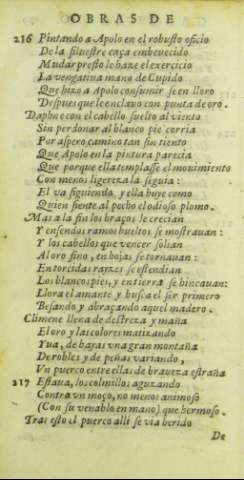 OBRAS DE
216 Pintando a Apolo en el robusto oficio
De la siluestre caça embeuecido
Mudar presto le haze el exercicio
La vengatiua mano de Cupido
Que hizo a Apolo consumirse en lloro
Despues que le enclauo con punta de oro.
Daphne con el cabello suelto al viento
Sin perdonar al blanco pie corria
Por aspero camino tan sin tiento
Que Apolo en la pintura parecia
Que porque ella templasse el mouimiento
Con menos ligereza la seguia:
El va siguiendo, y ella huye como
Quien siente al pecho el odioso plomo.
Mas a la fin los braços le crecian
Y en sendos ramos bueltos se mostrauan:
Y los cabellos que vencer solian
Al oro fino, en hojas se tornauan:
En torcidas rayzes se estendian
Los blancos pies, y en tierra se hincauan:
Llora el amante y busca el ser primero
Besando y abraçando aquel madero.
Climene llena de destreza y maña
El oro y las colores matizando
Yua, de hayas vna gran montaña
De robles y de peñas variando,
Vn puerco entre ellas de braueza estraña
217 Estaua, los colmillos aguzando
Contra vn moço, no menos animoso
(Con su venablo en mano) que hermoso.
Tras esto el puerco alli se via herido
De